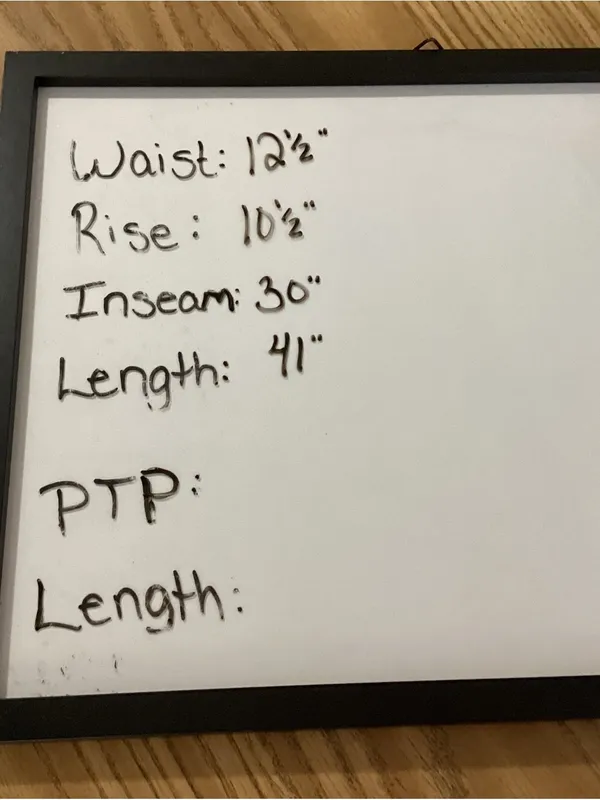 Waist: 12½"
Rise: 10½"
Inseam: 30"
Length: 41"
PTP:
Length: